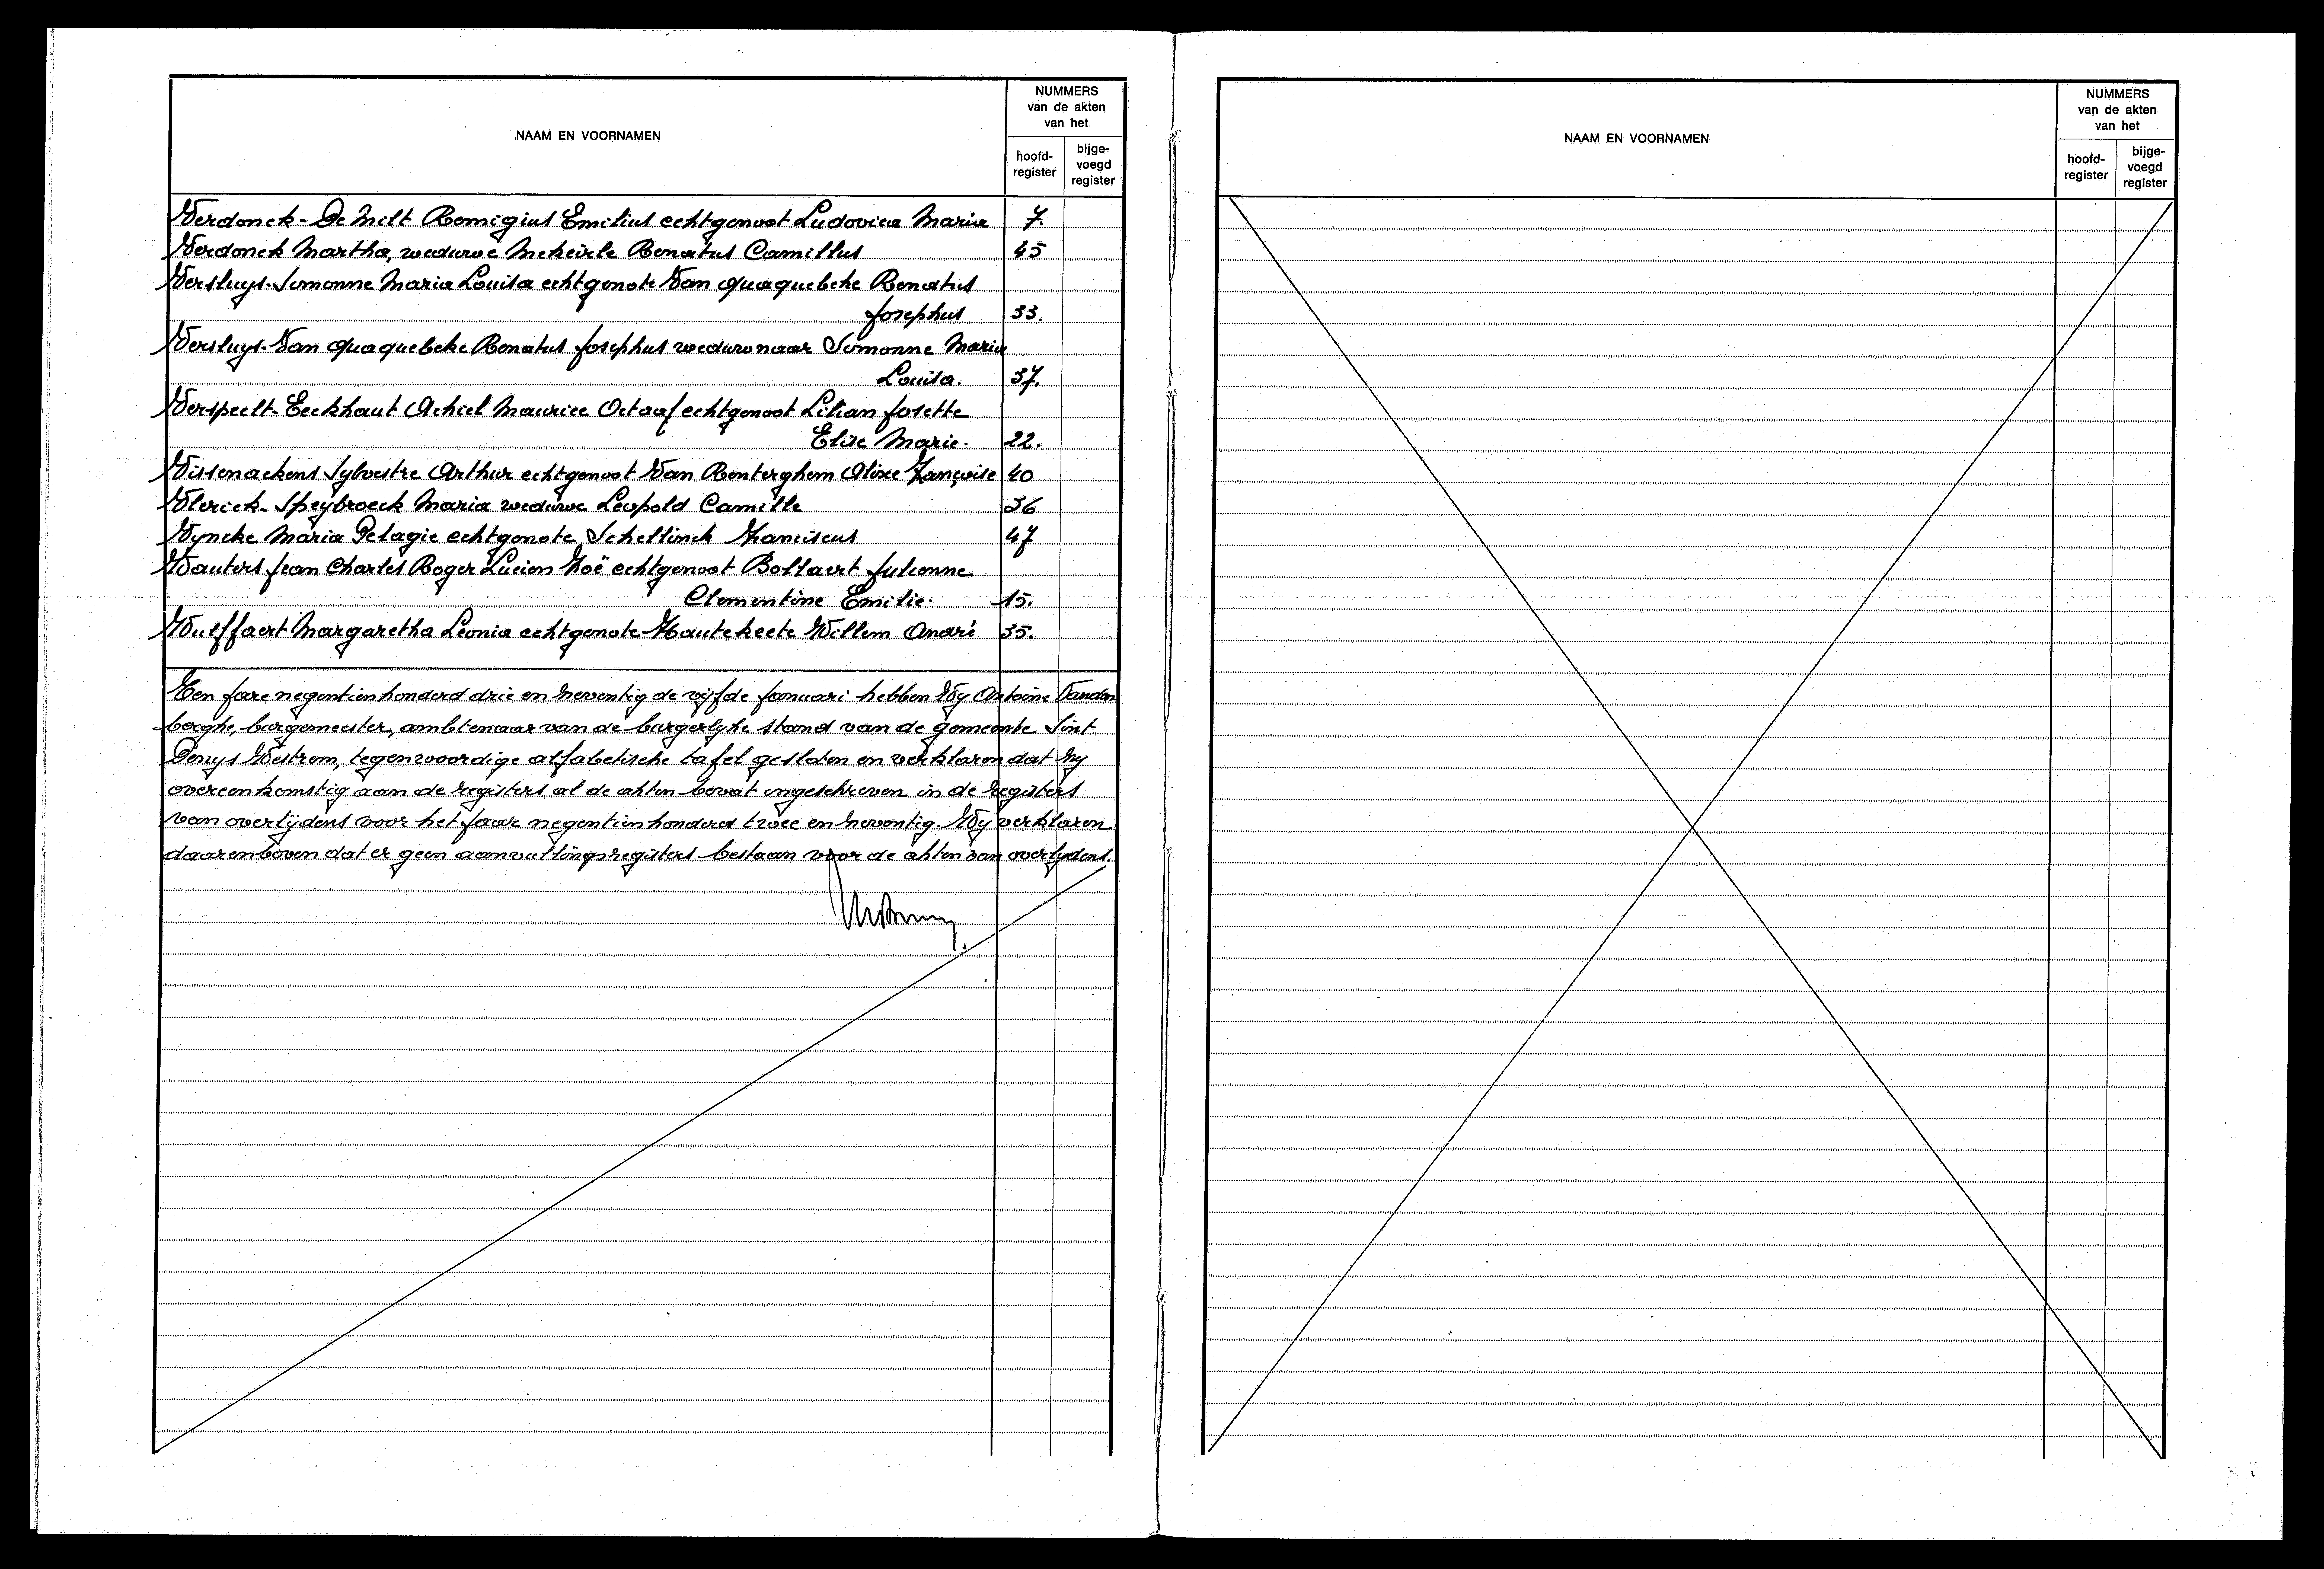 NAAM EN VOORNAMEN
NUMMERS
van de akten
van het
hoofd-
register
bijge-
voegd
register
Verdonck - De Milt Remigius Emilius echtgenoot Ludovica Maria 7.
Verdonck Martha, weduwe Mekeirle Renatus Camillus 45
Versluys - Simonne Maria Louisa echtgenote Van Quaquebeke Renatus
Josephus 33.
Versluys - Van Quaquebeke Renatus Josephus weduwnaar Simonne Maria
Louisa. 37.
Verspeelt - Eeckhaut Achiel Maurice Octaaf echtgenoot Lilian Josette
Elise Marie. 22.
Vissenackens Sylvestre Arthur echtgenoot Van Renterghem Alixe Françoise 40
Vlerick - Speybroeck Maria weduwe Leopold Camille 36
Vyncke Maria Pelagie echtgenote Schellinck Franciscus 47
Wauters Jean Charles Roger Lucien Noë echtgenoot Bollaert Julienne
Clementine Emilie. 15.
Wulffaert Margaretha Leonia echtgenote Hautekeete Willem André 35.
Ten Jare negentienhonderd drie en neventig de vijfde Januari hebben Wy Antoine Vanden
berghe, burgemeester, ambtenaar van de burgerlyke stand van de gemeente Sint
Denys Westrem, tegenwoordige alfabetische tafel gesloten en verklaren dat hy
overeenkomstig aan de registers al de akten bevat ingeschreven in de registers
van overlijdens voor het Jaar negentienhonderd twee en neventig. Wy verklaren
daarenboven dat er geen aanvullingsregisters bestaan voor de akten van overlydens.
NAAM EN VOORNAMEN
NUMMERS
van de akten
van het
hoofd-
register
bijge-
voegd
register